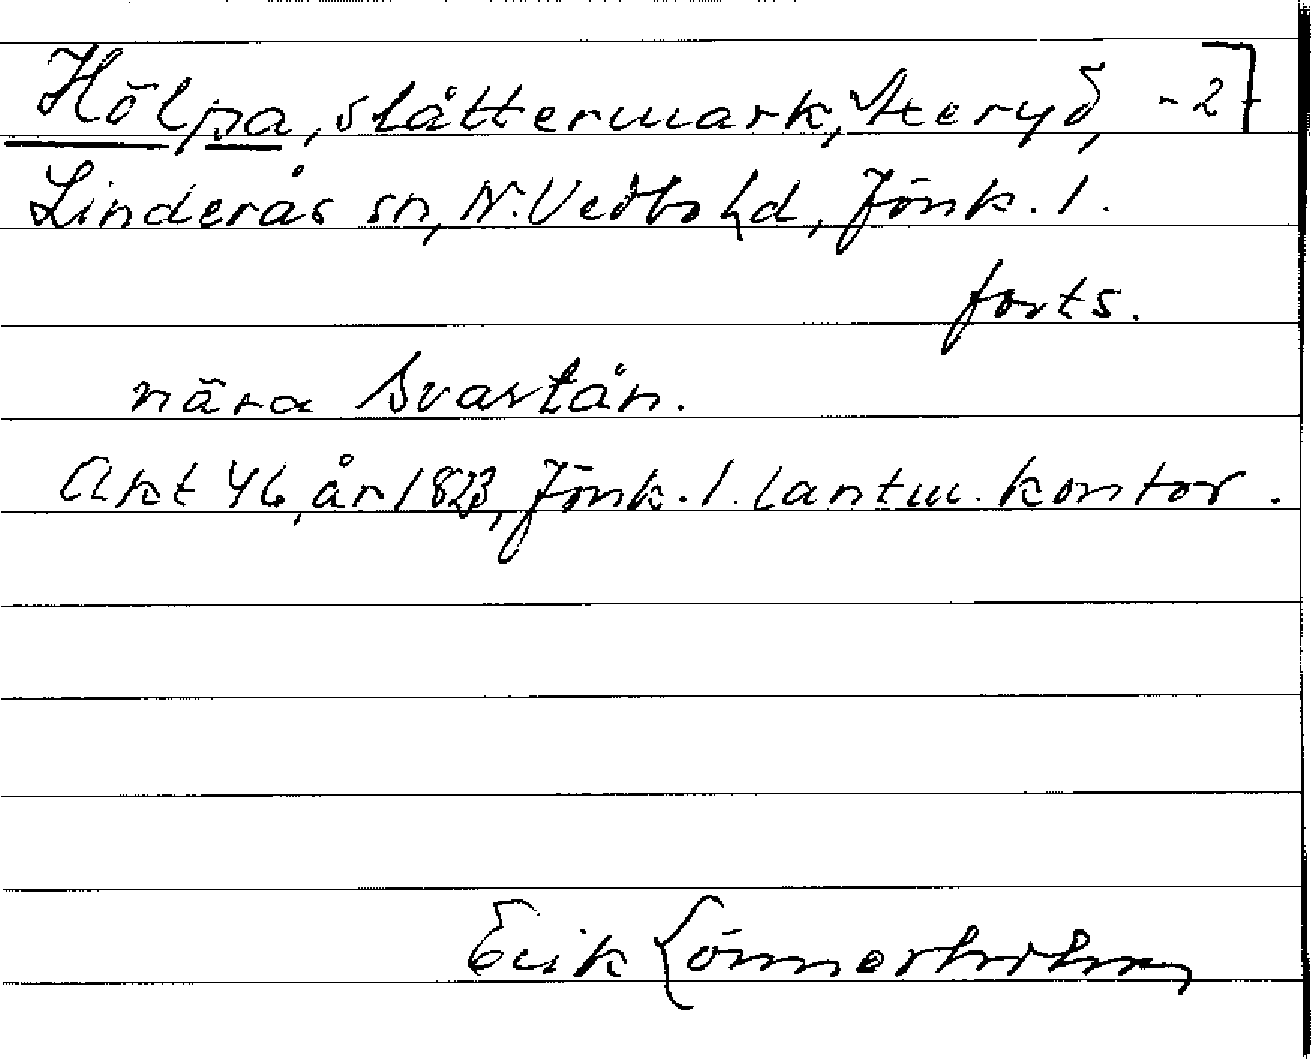 Hölpa, slåttermark, Åkeryd, -2-
Linderås sn, N. Vedbo hd, Jönk. l.
forts.
nära Svartån.
Akt 46, år 1823, Jönk. l. lantm. kontor.
Erik Lönnerholm